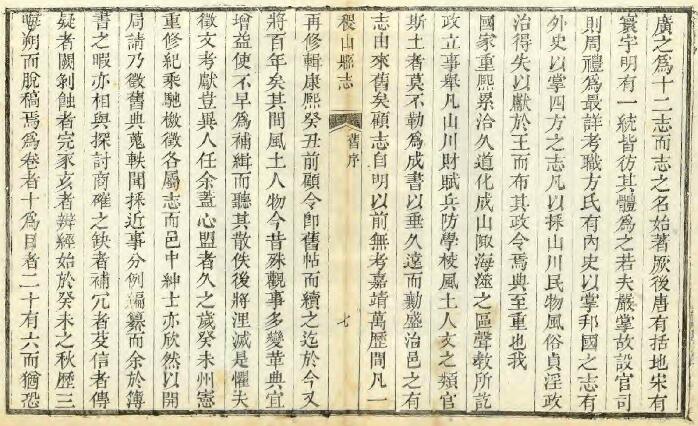 廣之爲十二志而志之名始著厥後唐有括地宋有
寰宇明有一統皆彷其體爲之若夫嚴掌故設官司
則周禮爲最詳考職方氏有內史以掌邦國之志有
外史以掌四方之志凡以採山川民物風俗貞淫政
治得失以獻於王而布其政令焉典至重也我
國家重熙累洽久道化成山陬海澨之區聲教所訖
政立事舉凡山川財賦兵防學校風土人文之類官
斯土者莫不勒爲成書以垂久遠而勷盛治邑之有
志由來舊矣顧志自明以前無考嘉靖萬歷間凡一
稷山縣志
舊序
七
再修輯康熙癸丑前顧令卽舊帖而續之迄於今又
將百年矣其間風土人物今昔殊觀事多變革典宜
增益使不早爲補緝而聽其散佚後將湮滅是懼夫
徵文考獻豈異人任余蓋心盟者久之歲癸未州憲
重修紀乘馳檄徵各屬志而邑中紳士亦欣然以開
局請乃徵舊典蒐軼聞採近事分例編纂而余於簿
書之暇亦相與探討商確之缺者補冗者芟信者傳
疑者闕剝蝕者完豕亥者辨經始於癸未之秋歷三
晦朔而脫稿焉爲卷者十爲目者二十有六而猶恐